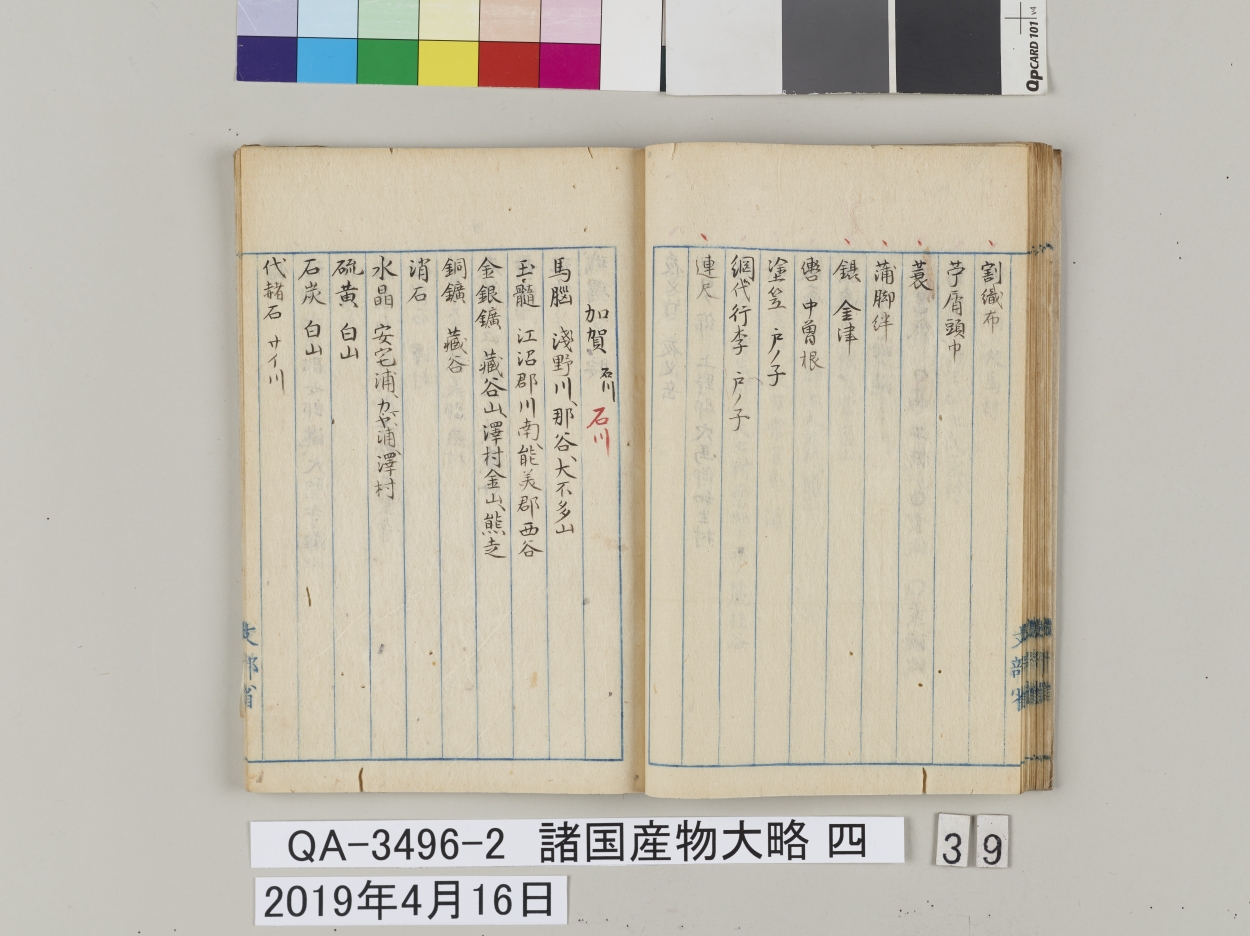 QPCARD 101 v4
割織布
苧屑頭巾
蓑
蒲脚絆
鋃 金津
轡 中曽根
塗笠 戸ノ子
網代行李 戸ノ子
連尺
加賀 石川 石川
馬腦 淺野川、那谷、大不多山
玉髓 江沼郡川南、能美郡西谷
金銀鑛 藏谷山、澤村金山、熊走
銅鑛 藏谷
消石
水晶 安宅浦、カヤ浦、澤村
硫黄 白山
石炭 白山
代赭石 サイ川
文部省
文部省
QA-3496-2 諸国産物大略 四
39
2019年4月16日